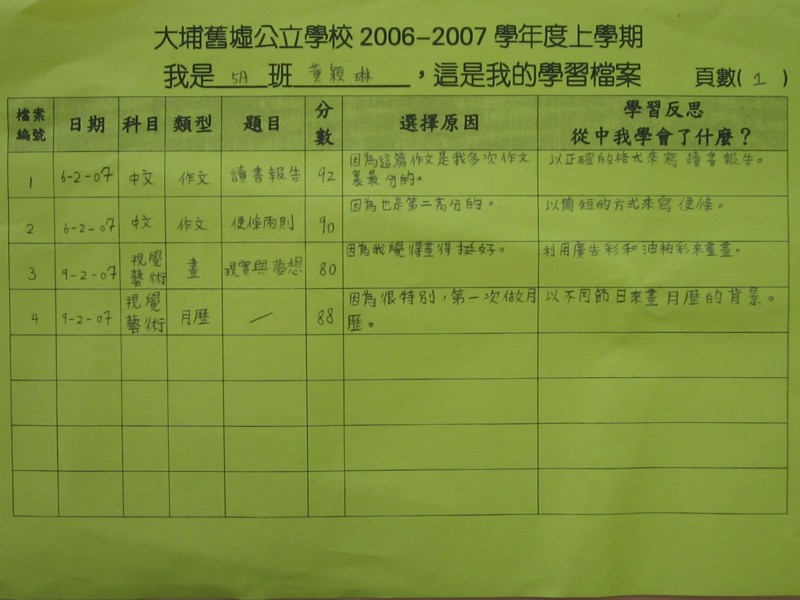 大埔舊墟公立學校 2006-2007 學年度上學期
我是 5A 班 黃穎琳 ，這是我的學習檔案 頁數( 1 )
檔案編號 日期 科目 類型 題目 分數 選擇原因 學習反思 從中我學會了什麼？
1 6-2-07 中文 作文 讀書報告 92 因為這篇作文是我多次作文裏最分的。 以正確的格式來寫讀書報告。
2 6-2-07 中文 作文 便條兩則 90 因為也是第二高分的。 以簡短的方式來寫便條。
3 9-2-07 視覺藝術 畫 現實與夢想 80 因為我覺得畫得挺好。 利用廣告彩和油粉彩來畫畫。
4 9-2-07 視覺藝術 月歷 ／ 88 因為很特別，第一次做月歷。 以不同節日來畫月歷的背景。